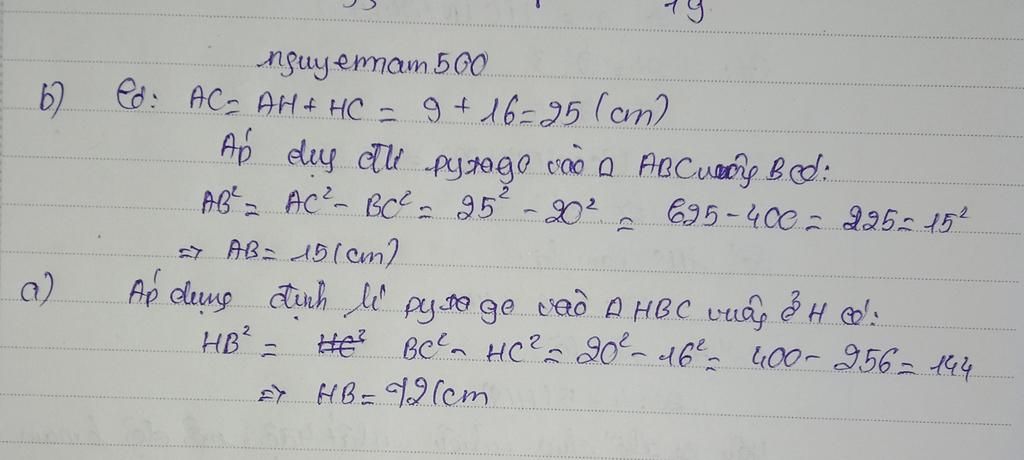 19
nguyennam500
b) Có: AC = AH + HC = 9 + 16 = 25 (cm)
Áp dụg đlí pytago vào Δ ABC vuông B có:
AB² = AC² - BC² = 25² - 20² = 625 - 400 = 225 = 15²
⇒ AB = 15 (cm)
a) Áp dụng định lí pytago vào Δ HBC vuông ở H có:
HB² = HC² BC² - HC² = 20² - 16² = 400 - 256 = 144
⇒ HB = 12 (cm